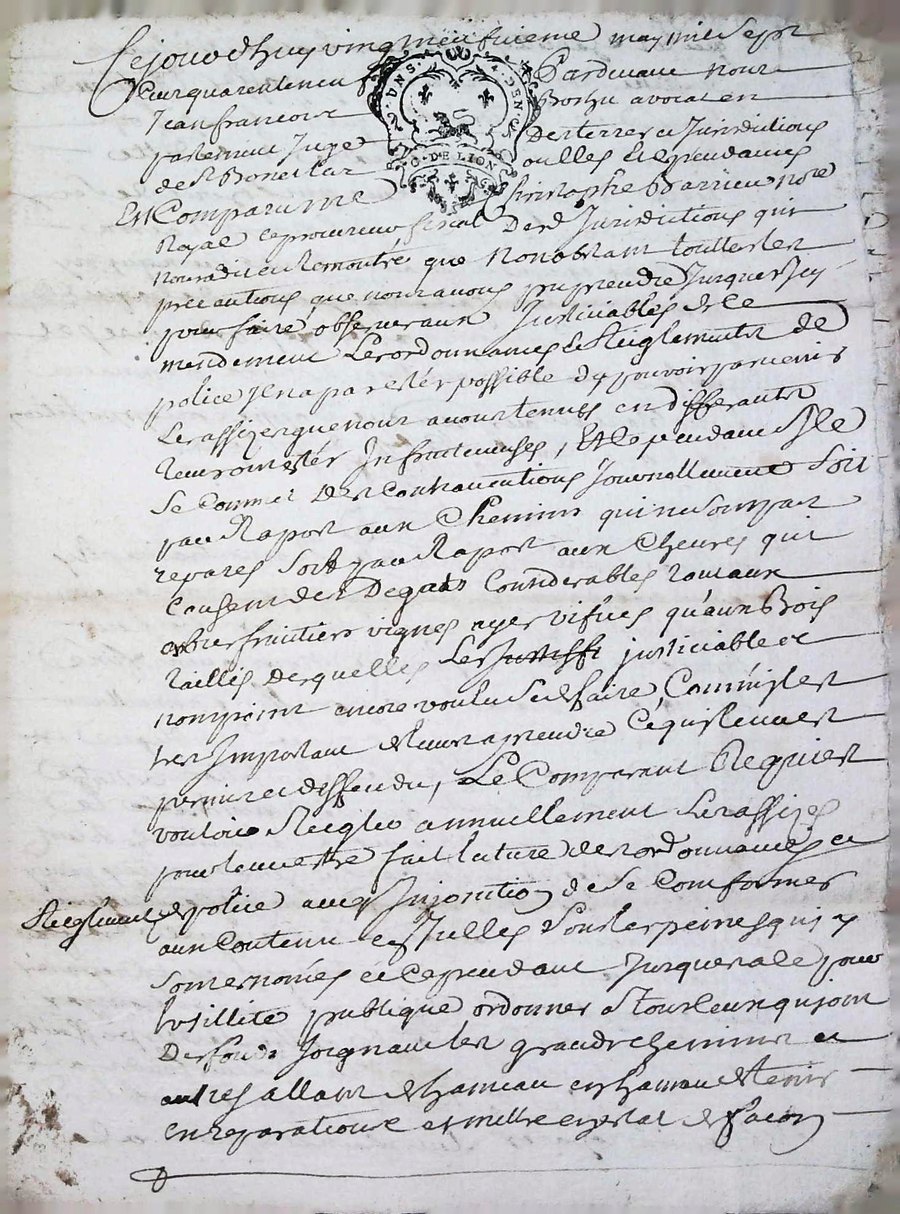 Cejourdhuy vingtneufvieme may mil sept
Cent quarente neuf Pardevant nous
Jean francois Boshu avocat en
parlement Juge Des terres et Jurisdictions
de St Bonet Lar oulles et dependances
Est Comparu me Christophe Barrieu nore
Royal et procureur fiscal Desd Jurisdictions qui
nous a dit et Remontré que Nonobstant touttes les
precautions que nous avons pu prendre Jusques Icy
pour faire observer aux Justiciables de Ce
mendement Les ordonnances et Reiglements de
police Il n a pas estér possible d y pouvoir parvenir
Les assizes que nous avons tenues en differants
Temps ont estér Infructeuses, Et Cependant Il
Se Commet des Contraventions Journellement Soit
par Raport aux Chemins qui ne Sont pas
repares Soit par Raport aux Chevres qui
Causent des Degats Considerables tant aux
arbres fruitiers vignes ayes vifves qu'aux Bois
taillis desquelles Les justiciables
nont point encore voulu Se defaire Comm'il est
tres Important de leurs aprendre Ce qui leur est
permis et deffendu, Le Comparant Requiert
vouloir Reigler annuellement Les assizes
pour leur estre fait lecture des ordonnances et
Reiglement de police avec Injonction de Se Conformer
aux Contenu en Icelles Sous les peines qui y
Sont ernoncés et Cependant Jusques a le pour
lutillité publique ordonner a tous Ceux qui ont
Des fonds Joignant les grands chemins et
autres allant de hameau en hameau de tenir
en reparations et mettre en estat de facon